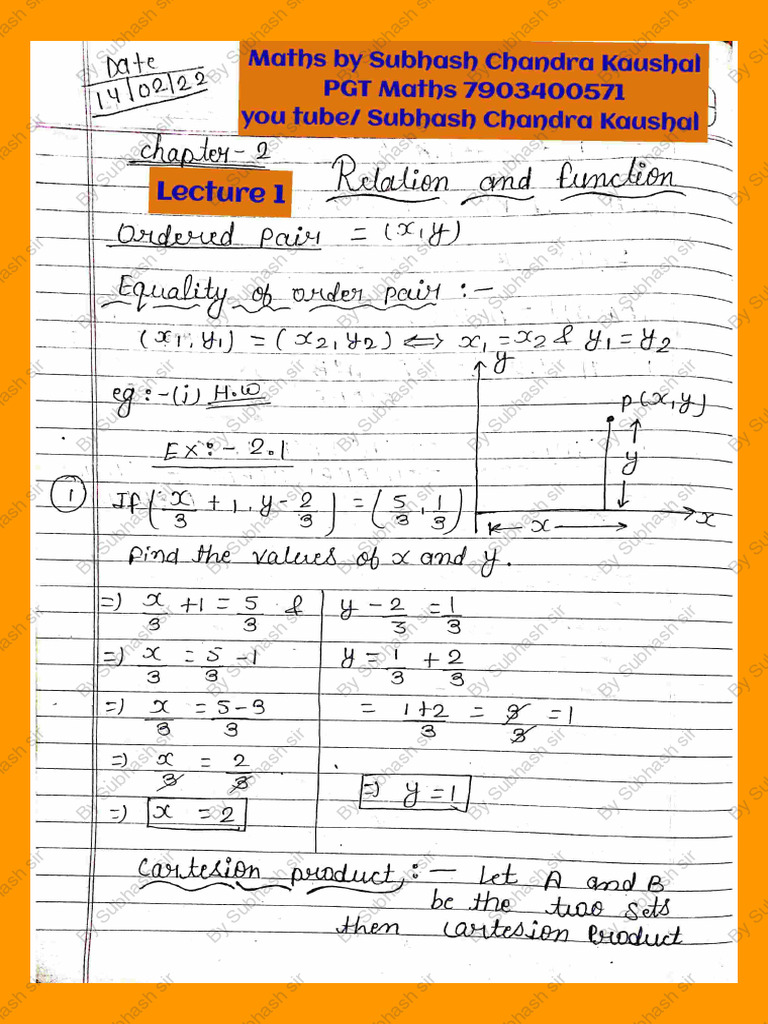 Date
14/02/22
Maths by Subhash Chandra Kaushal
PGT Maths 7903400571
you tube/ Subhash Chandra Kaushal
Chapter-2
Lecture 1
Relation and function
Ordered pair = (x,y)
Equality of order pair :-
(x₁,y₁) = (x₂,y₂) ⇔ x₁ = x₂ & y₁ = y₂
eg :- (i) H.W
y
P(x,y)
y
x
x
Ex:- 2.1
① If (x/3 + 1, y - 2/3) = (5/3, 1/3)
Find the values of x and y.
=) x/3 + 1 = 5/3 &
=) x/3 = 5/3 - 1
=) x/3 = 5-3/3
=) x/3 = 2/3
=) x = 2
y - 2/3 = 1/3
y = 1/3 + 2/3
= 1+2/3 = 3/3 = 1
=) y = 1
Cartesion product :- Let A and B
be the two sets
then Cartesion Product
By Subhash sir